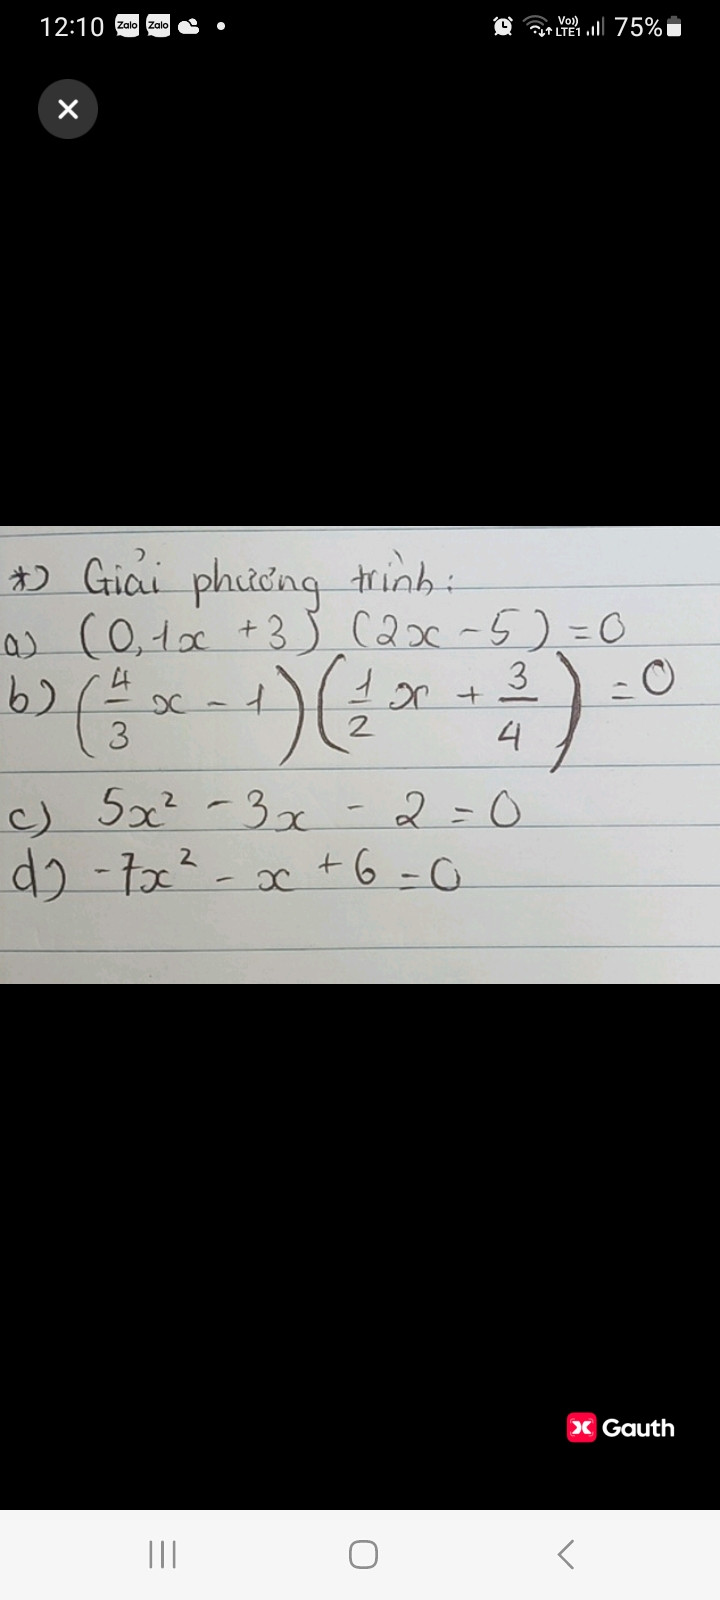 12:10 Zalo Zalo Vo)) LTE1 75%
*) Giải phương trình:
a) (0,1x + 3) (2x - 5) = 0
b) (4/3 x - 1) (1/2 x + 3/4) = 0
c) 5x² - 3x - 2 = 0
d) -7x² - x + 6 = 0
Gauth